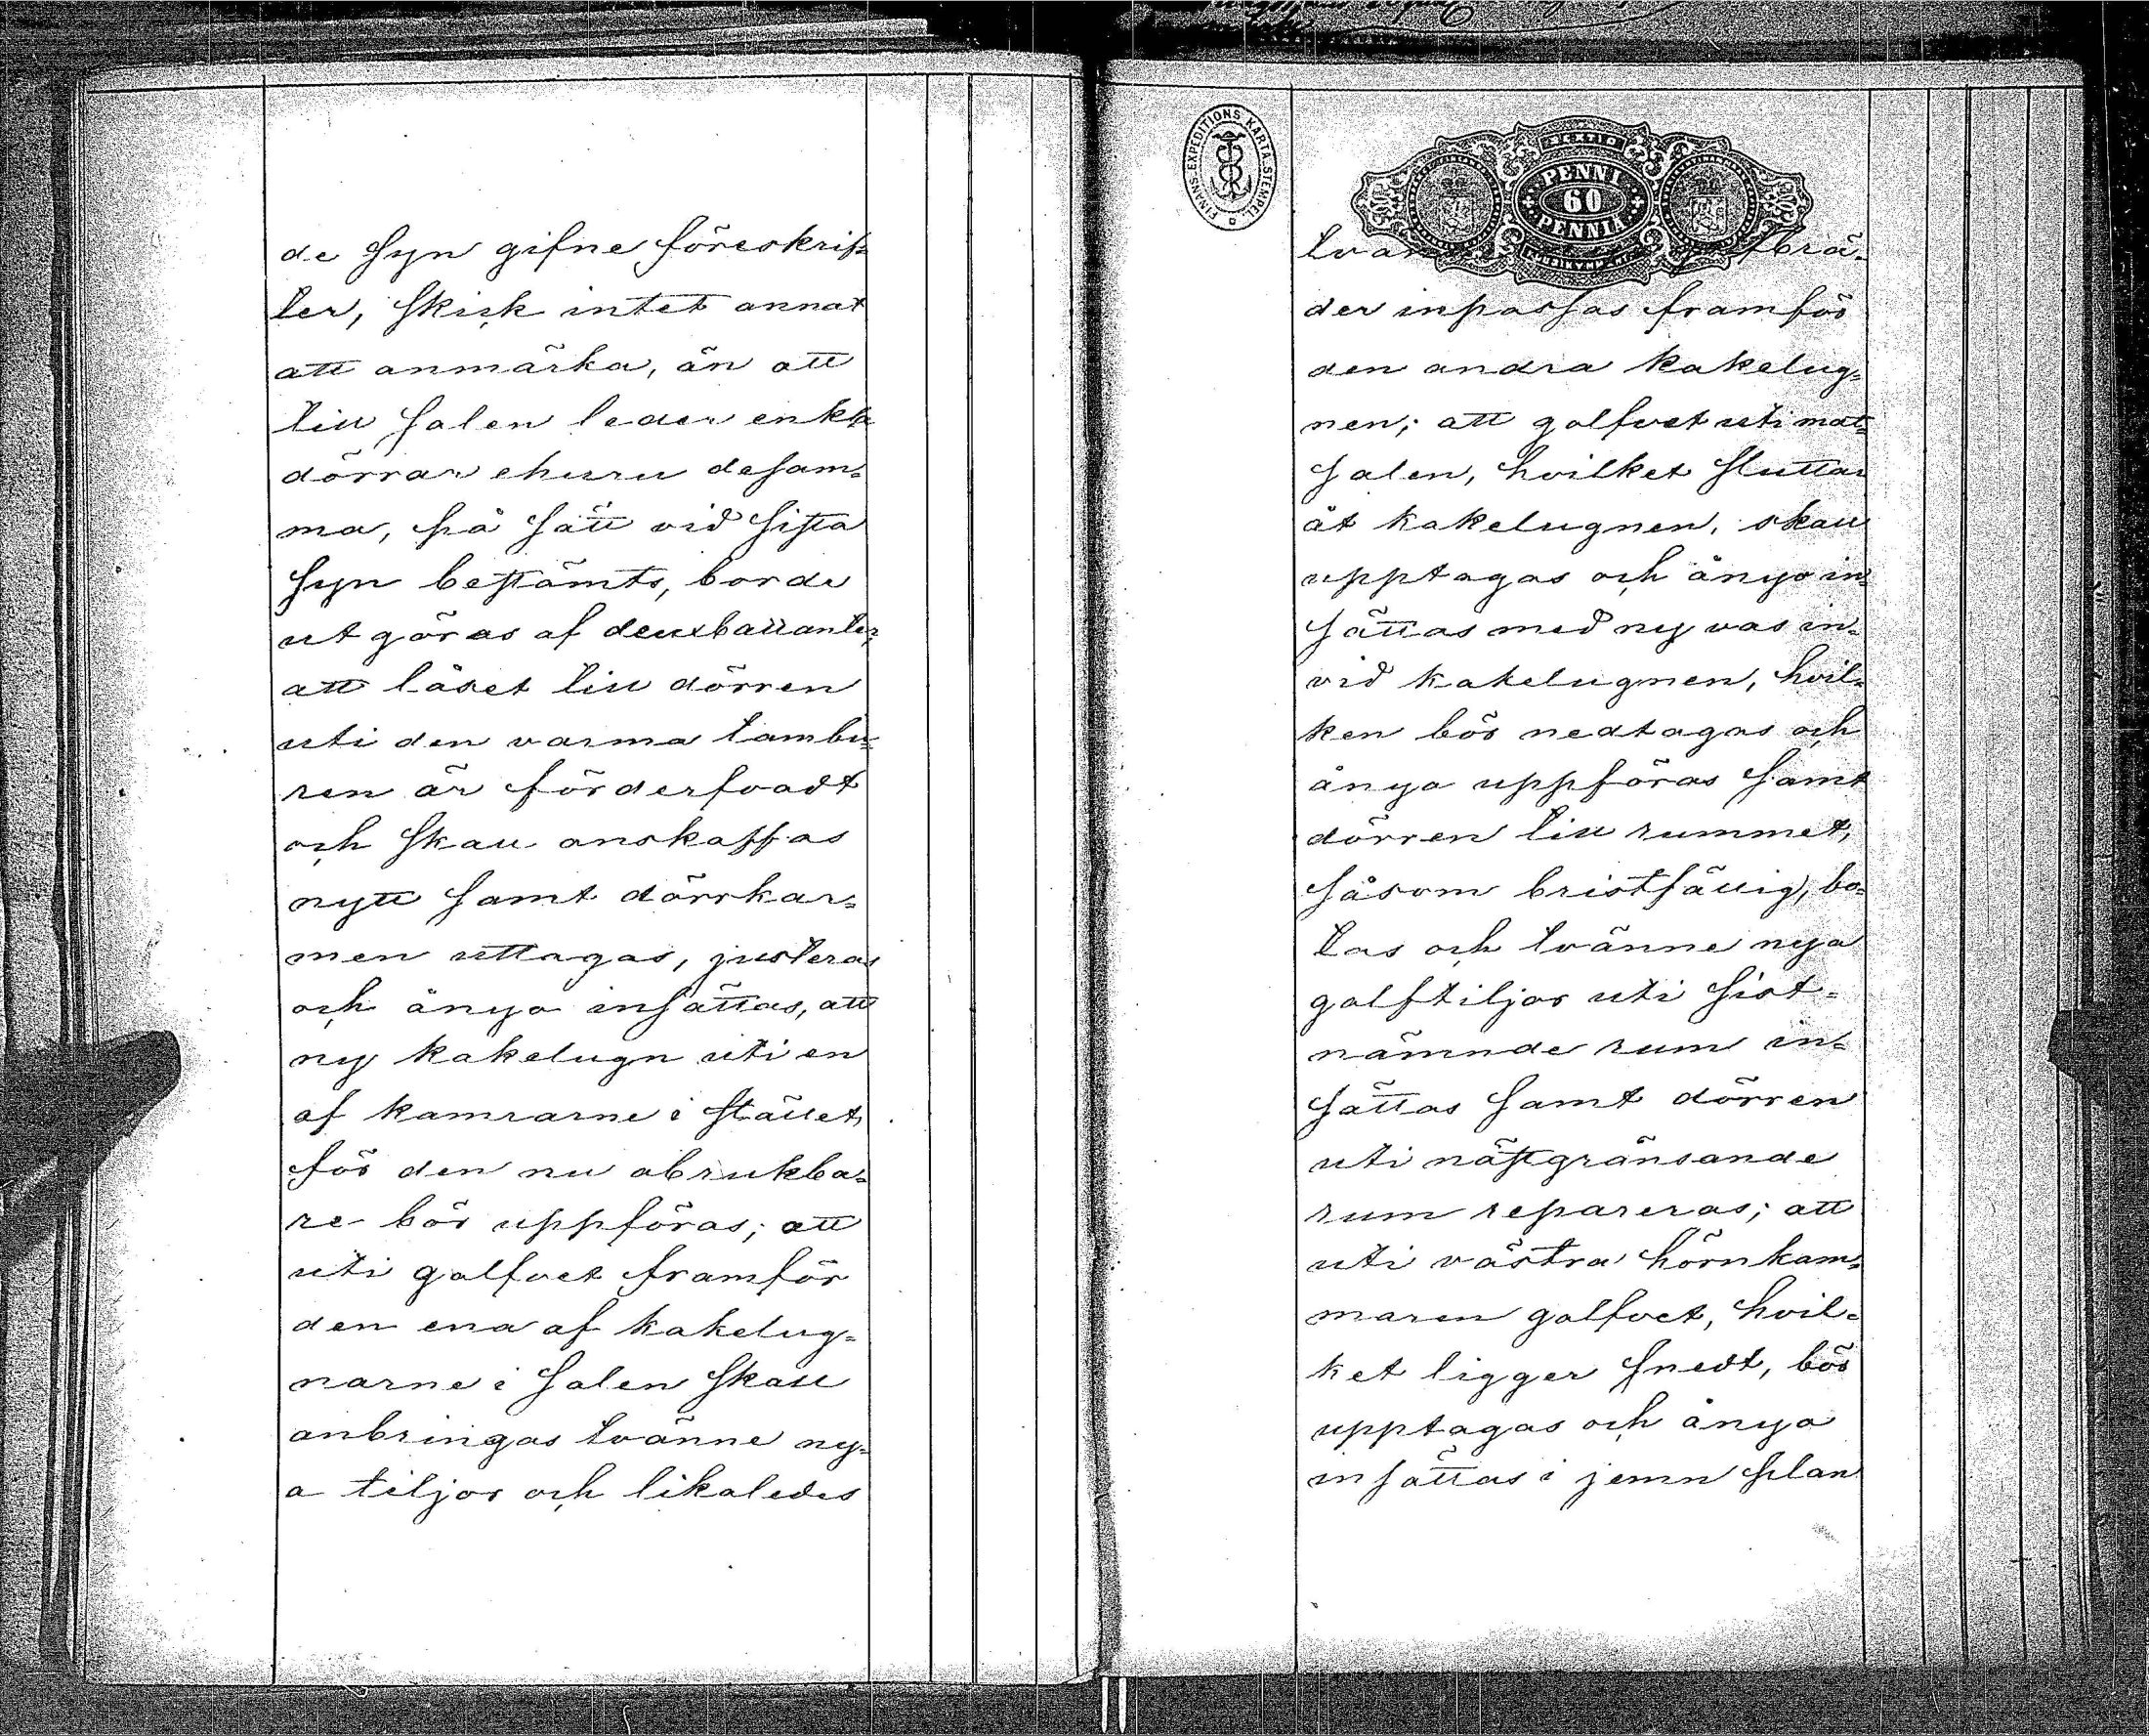 de syn gifne föreskrif-
ter, skick intet annat
att anmärka, än att
till salen leder enkla
dörrar ehuru desam-
ma, på sätt vid sista
syn bestämts, borde
utgöras af deuxballanter,
att låset till dörren
uti den varma tambu-
ren är förderfvadt
och skall anskaffas
nytt samt dörrkar-
men uttagas, justeras
och ånyo insättas, att
ny kakelugn uti en
af kamrarne i stället
för den nu obrukba-
re bör uppföras; att
uti golfvet framför
den ena af kakelug-
narne i salen skall
anbringas tvänne ny-
a tiljor och likaledes
FINANS-EXPEDITIONS KARTA STEMPEL
SEXTIO
PENNI
60
PENNIÄ
brä-
der inpassas framför
den andra kakelug-
nen; att golfvet uti mat-
salen, hvilket sluttar
åt kakelugnen, skall
upptagas och ånyo in-
sättas med ny vas in-
vid kakelugnen, hvil-
ken bör nedtagas och
ånyo uppföras samt
dörren till rummet,
såsom bristfällig, bo-
tas och tvänne nya
golftiljor uti sist-
nämnde rum in-
sättas samt dörren
uti nästgränsande
rum repareras; att
uti västra hörnkam-
maren golfvet, hvil-
ket ligger snedt, bör
upptagas och ånyo
insättas i jemn plan